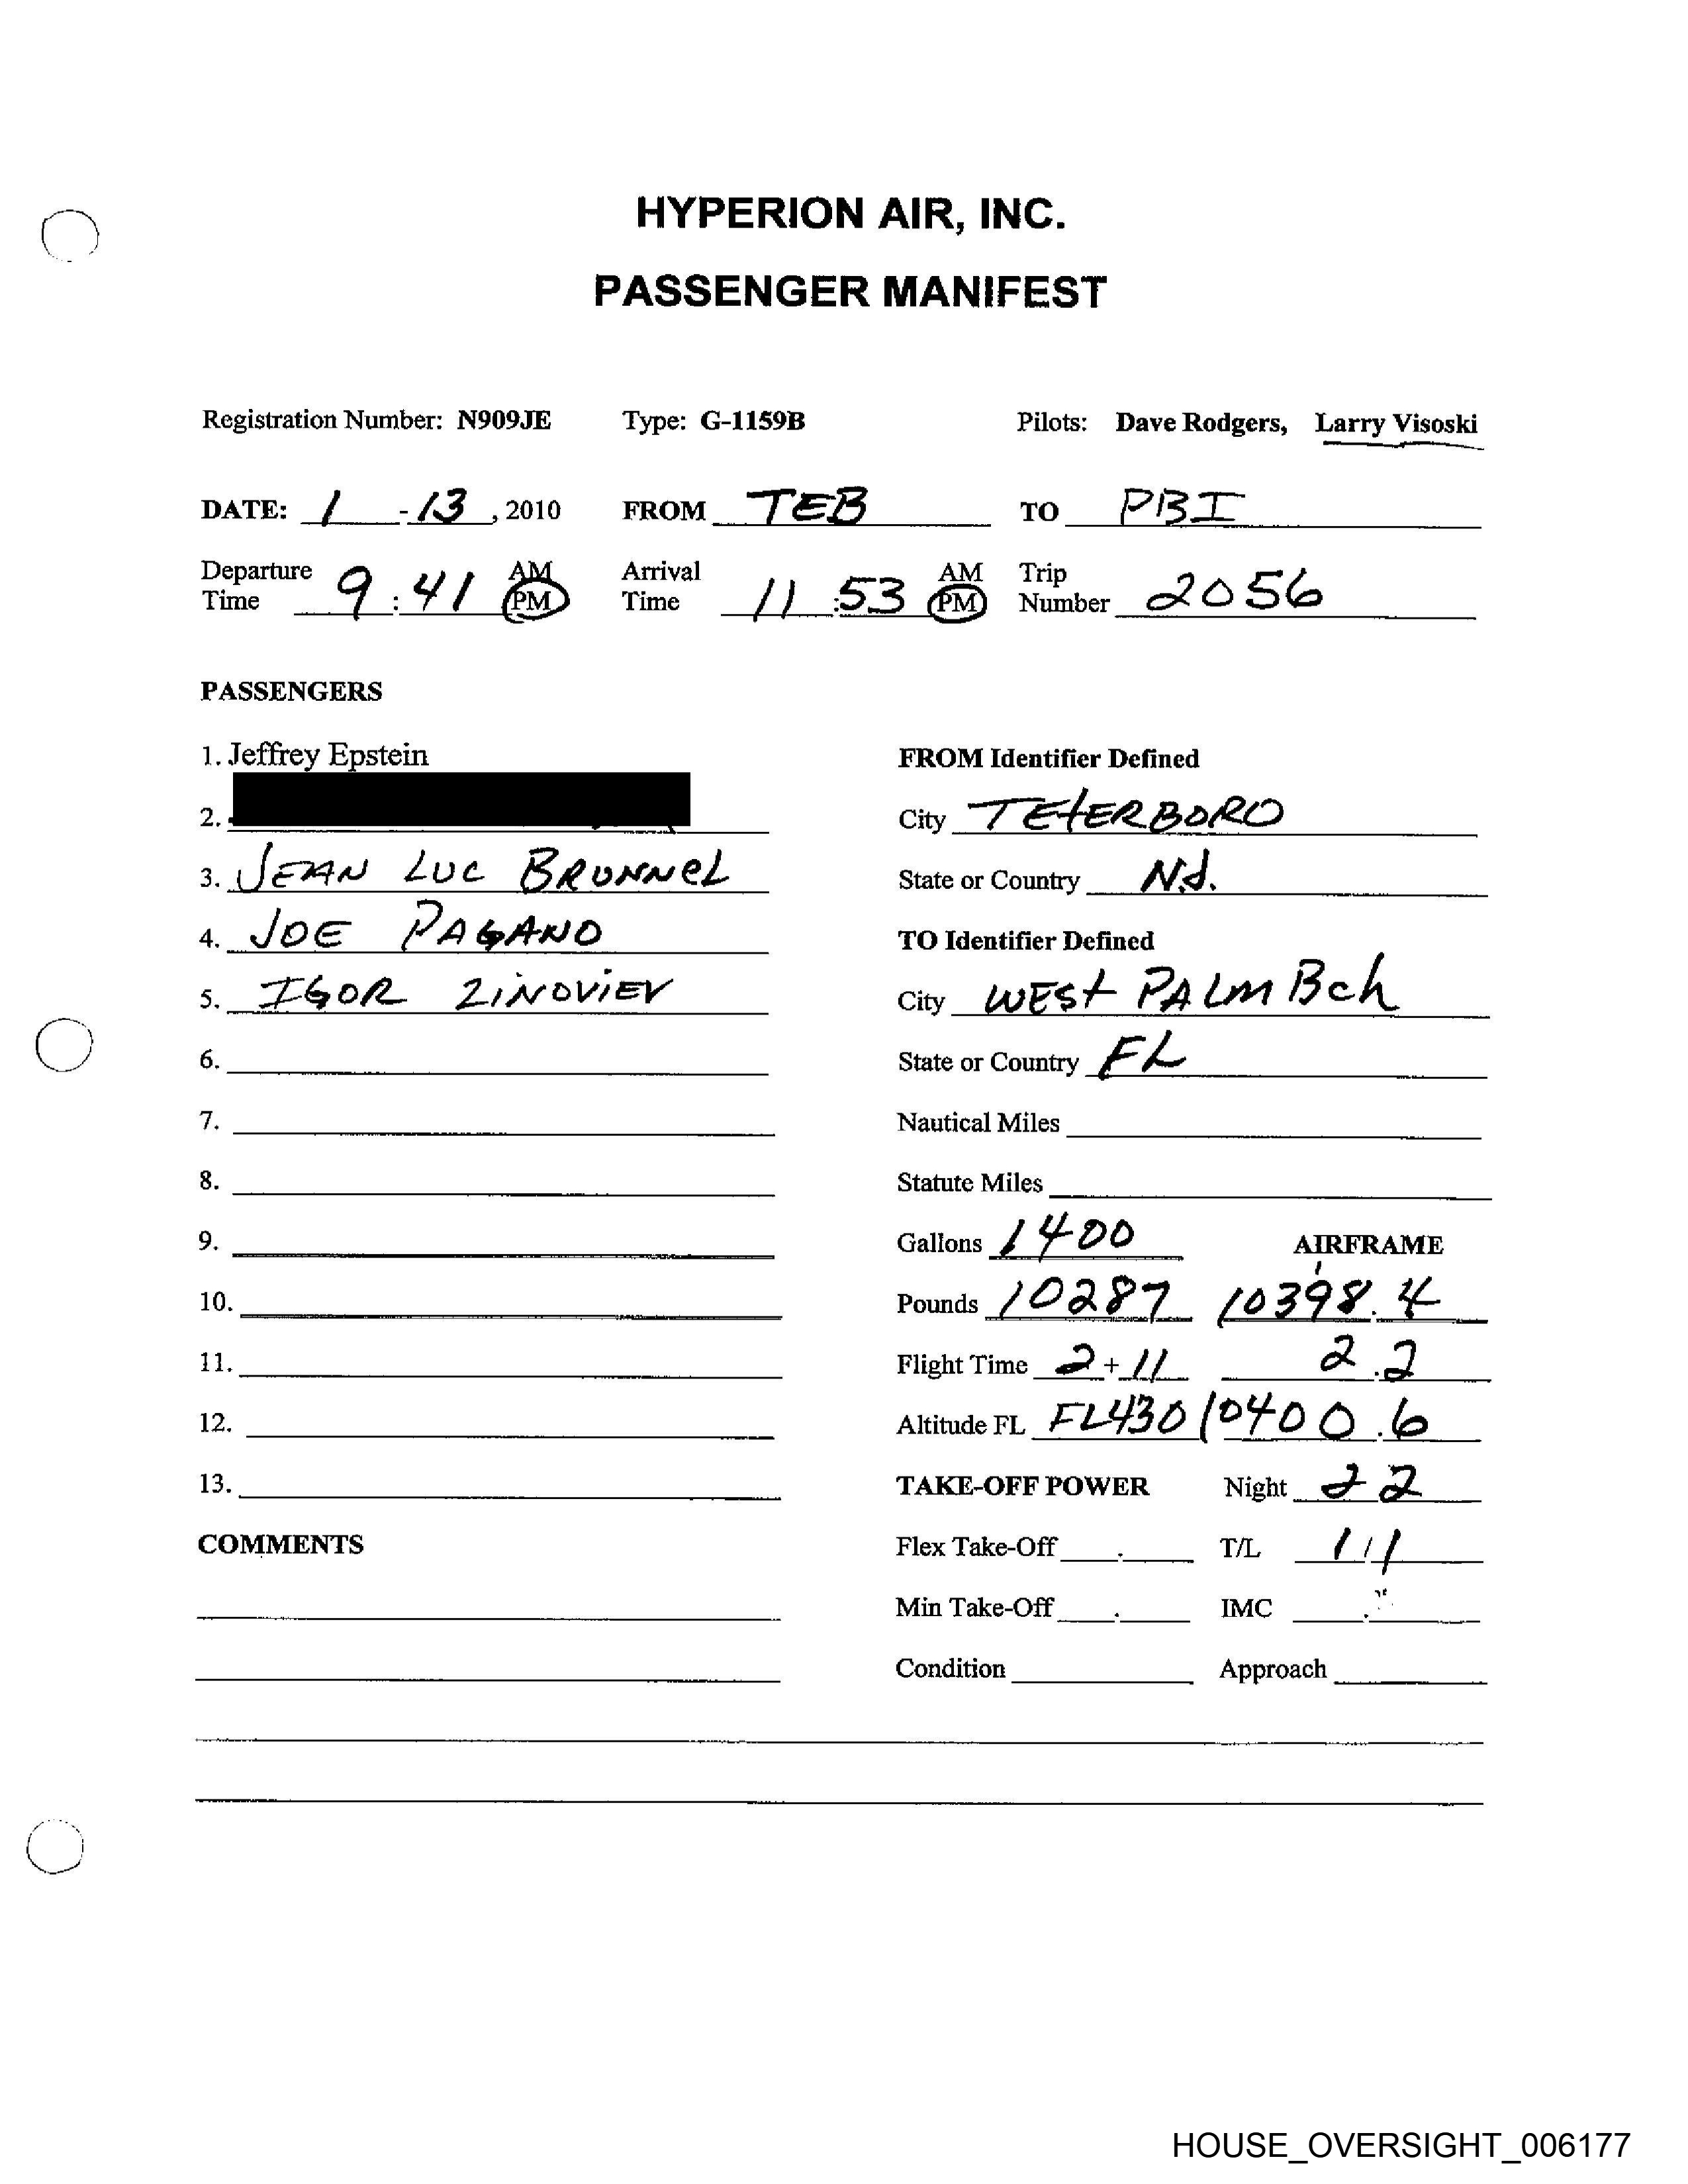 HYPERION AIR, INC.
PASSENGER MANIFEST
Registration Number: N909JE Type: G-1159B Pilots: Dave Rodgers, Larry Visoski
DATE: 1 - 13, 2010 FROM TEB TO PBI
Departure Time 9:41 AM PM Arrival Time 11:53 AM PM Trip Number 2056
PASSENGERS
1. Jeffrey Epstein
2.
3. JEAN LUC BRUNNEL
4. JOE PAGANO
5. IGOR ZINOVIEV
6.
7.
8.
9.
10.
11.
12.
13.
COMMENTS
FROM Identifier Defined
City TETERBORO
State or Country N.J.
TO Identifier Defined
City WEST PALM Bch
State or Country FL
Nautical Miles
Statute Miles
Gallons 1400 AIRFRAME
Pounds 10287 10398.4
Flight Time 2+11 2.2
Altitude FL FL430 10400.6
TAKE-OFF POWER Night 2 2
Flex Take-Off . T/L 1/1
Min Take-Off . IMC .
Condition Approach
HOUSE_OVERSIGHT_006177